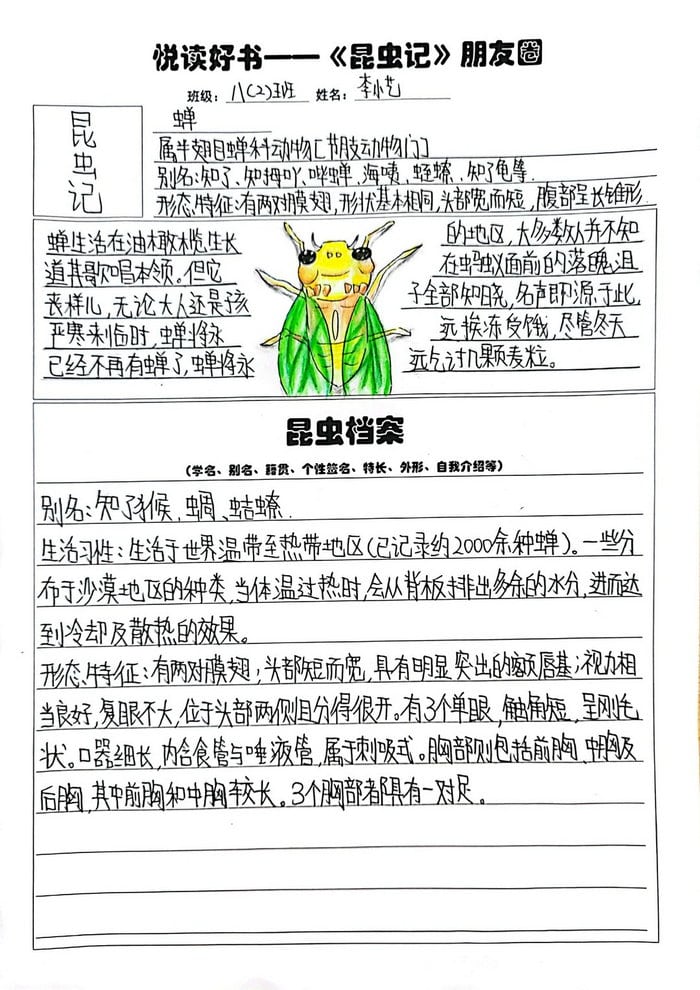 悦读好书——《昆虫记》朋友圈
班级：八(2)班 姓名：李小艺
昆虫记
蝉
属半翅目蝉科动物[节肢动物门]
别名：知了、知拇吖、哔蝉、海咦、蛭蟟、知了龟等.
形态特征：有两对膜翅，形状基本相同，头部宽而短，腹部呈长锥形.
蝉生活在油橄榄生长的地区，大多数人并不知
道其歌唱本领。但它在蚂蚁面前的落魄沮
丧样儿，无论大人还是孩子全部知晓，名声即源于此，
严寒来临时，蝉将永远挨冻受饿，尽管冬天
已经不再有蝉了，蝉将永远乞讨几颗麦粒。
昆虫档案
(学名、别名、籍贯、个性签名、特长、外形、自我介绍等)
别名：知了猴、蜩、蛣蟟.
生活习性：生活于世界温带至热带地区(已记录约2000余种蝉)。一些分
布于沙漠地区的种类，当体温过热时，会从背板排出多余的水分，进而达
到冷却及散热的效果。
形态特征：有两对膜翅；头部短而宽，具有明显突出的额唇基；视力相
当良好，复眼不大，位于头部两侧且分得很开。有3个单眼，触角短，呈刚毛
状。口器细长，内含食管与唾液管，属于刺吸式。胸部则包括前胸、中胸及
后胸，其中前胸和中胸较长。3个胸部都具有一对足。